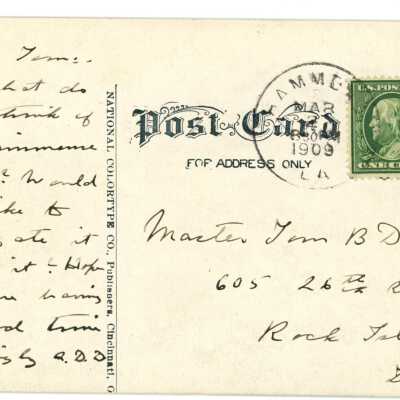 Tom:-
hat do
think of
Would
ke to
ate it
it? Hope
re having
od time
by A.D.D
NATIONAL COLORTYPE CO., Publishers, Cincinnati, O
Post Card
FOR ADDRESS ONLY
HAMMO
MAR
1909
LA
U.S. POS
Master Tom B D
605 26th
Rock Isl